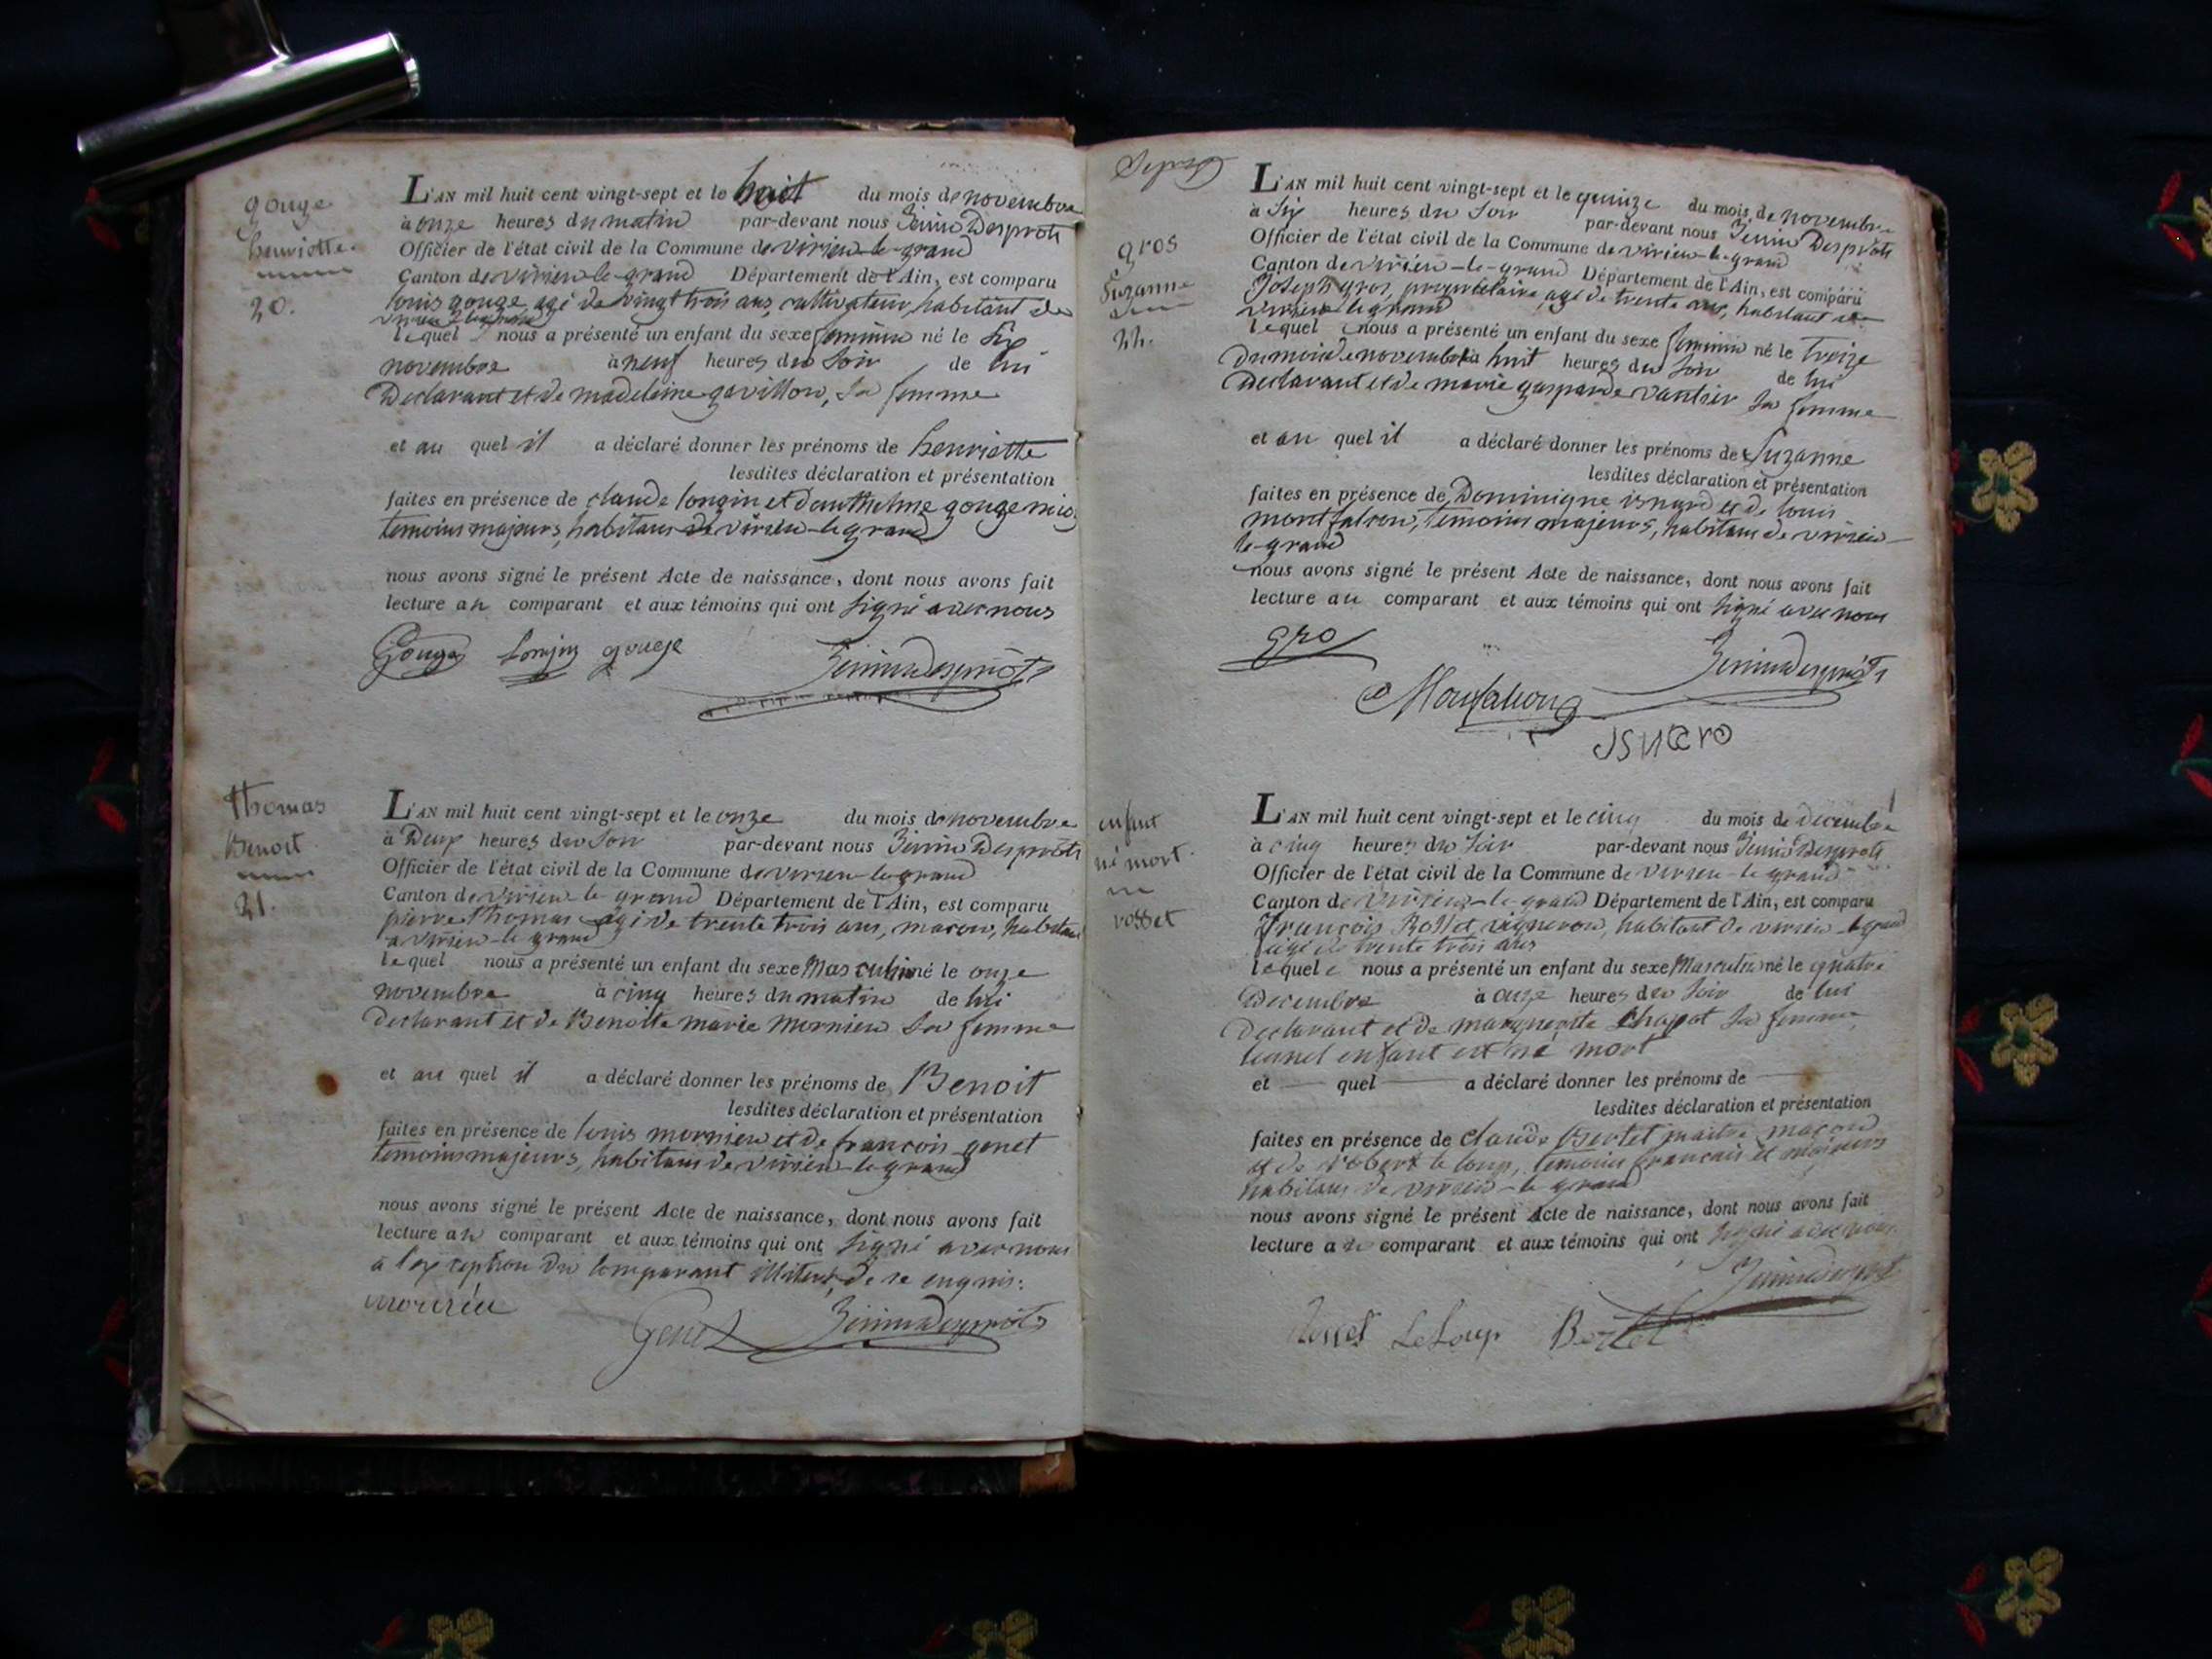 gouge
henriette.
20.
L'AN mil huit cent vingt-sept et le huit du mois de novembre
à onze heures du matin par-devant nous Jenin Desprôts
Officier de l'état civil de la Commune de virieu-le-grand
Canton de virieu-le-grand Département de l'Ain, est comparu
louis gouge, agé de vingt trois ans, cultivateur, habitant de
virieu le grand
lequel nous a présenté un enfant du sexe feminin né le six
novembre à neuf heures du soir de lui
Declarant et de madeleine gavillon, sa femme
et au quel il a déclaré donner les prénoms de henriette
lesdites déclaration et présentation
faites en présence de claude longin et d'anthelme gouge
temoins majeurs, habitans de virieu-le grand
nous avons signé le présent Acte de naissance, dont nous avons fait
lecture au comparant et aux témoins qui ont signé avec nous
Gouge Longin gouge Jenin Desprôts
thomas
Benoit
21.
L'AN mil huit cent vingt-sept et le onze du mois de novembre
à Deux heures du soir par-devant nous Jenin Desprôts
Officier de l'état civil de la Commune de virieu-le grand
Canton de virieu-le grand Département de l'Ain, est comparu
pierre thomas agé de trente trois ans, macon, habitant
a virieu-le grand
lequel nous a présenté un enfant du sexe Masculin né le onze
novembre à cinq heures du matin de lui
declarant et de Benoite marie mornieu sa femme
et au quel il a déclaré donner les prénoms de Benoit
lesdites déclaration et présentation
faites en présence de louis mornieu et de francois genet
temoins majeurs, habitans de virieu-le grand
nous avons signé le présent Acte de naissance, dont nous avons fait
lecture au comparant et aux témoins qui ont signé avec nous
a l'exception du comparant illiteré de ce enquis:
Genet Jenin Desprôts
gros
Suzanne
22.
L'AN mil huit cent vingt-sept et le quinze du mois de novembre
à six heures du soir par-devant nous Jenin Desprôts
Officier de l'état civil de la Commune de virieu-le-grand
Canton de virieu-le-grand Département de l'Ain, est comparu
Joseph gros, propriétaire, agé de trente ans, habitant de
virieu le grand
lequel nous a présenté un enfant du sexe feminin né le treize
du mois de novembre à huit heures du soir de lui
declarant et de marie gasparde vantier sa femme
et au quel il a déclaré donner les prénoms de Suzanne
lesdites déclaration et présentation
faites en présence de Dominique isnard et de louis
montfalcon, temoins majeurs, habitans de virieu-
le-grand
nous avons signé le présent Acte de naissance, dont nous avons fait
lecture au comparant et aux témoins qui ont signé avec nous
gro Jenin Desprôts
Monfalcon
enfant
né mort.
rosset
L'AN mil huit cent vingt-sept et le cinq du mois de decembre
à cinq heures du soir par-devant nous Jenin Desprôts
Officier de l'état civil de la Commune de virieu-le grand
Canton de virieu-le-grand Département de l'Ain, est comparu
françois Rosset, vigneron, habitant de virieu-le grand
agé de trente trois ans
lequel nous a présenté un enfant du sexe Masculin né le quatre
decembre à onze heures du soir de lui
declarant et de marguerite Chapot sa femme,
lequel enfant est né mort
et quel a déclaré donner les prénoms de
lesdites déclaration et présentation
faites en présence de claude Bertet maitre macon
et de robert le loup, temoins francais et majeurs
habitans de virieu-le grand
nous avons signé le présent Acte de naissance, dont nous avons fait
lecture au comparant et aux témoins qui ont signé avec nous.
Jenin Desprôts
Rosset LeLoup Bertet